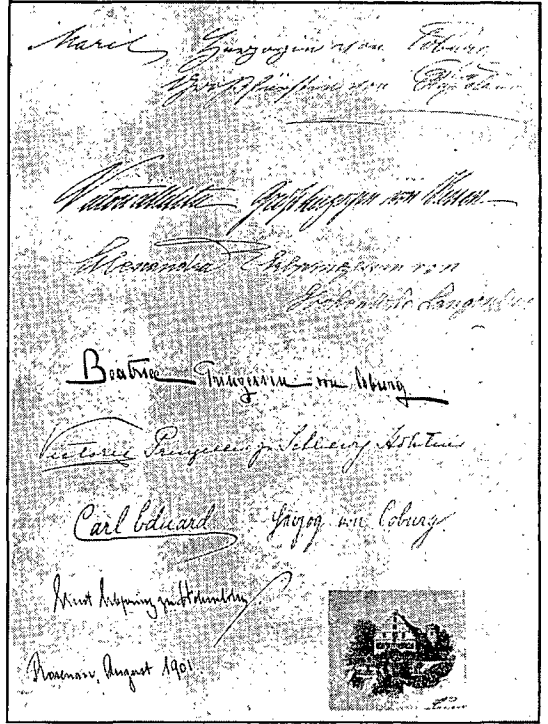 Marie Herzogin von Coburg
Großfürstin von Rußland
Victoria Melita Großherzogin von Hessen
Alexandra Erbprinzessin von
Hohenlohe Langenburg
Beatrice Prinzessin von Coburg
Victoria Prinzessin z. Schleswig Holstein
Carl Eduard Herzog von Coburg
Ernst Erbprinz zu Hohenlohe
Rosenau, August 1901